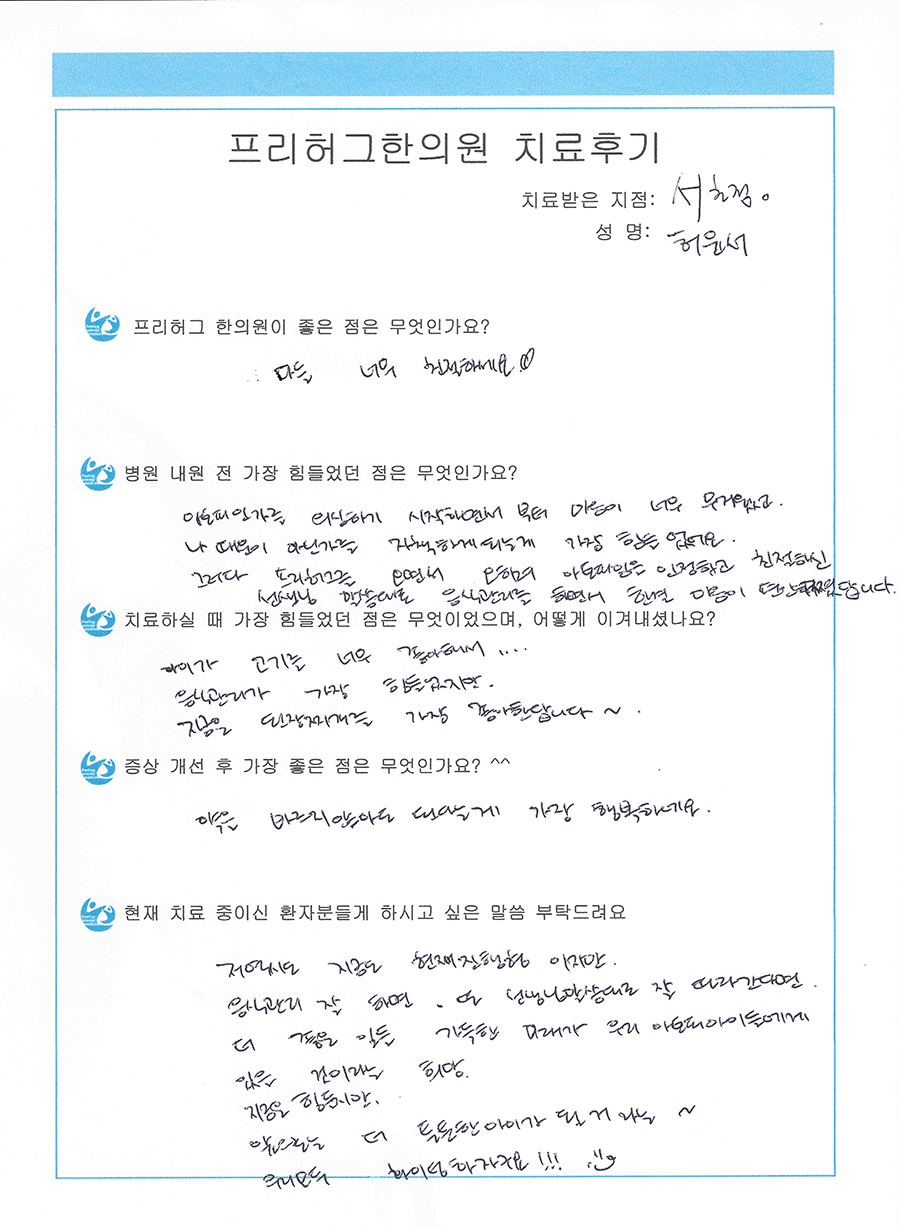 프리허그한의원 치료후기
치료받은 지점: 서초점.
성 명: 허윤서
프리허그 한의원이 좋은 점은 무엇인가요?
다들 너무 친절하세요♡
병원 내원 전 가장 힘들었던 점은 무엇인가요?
아토피인가를 의심하기 시작하면서 부터 마음이 너무 무거웠고.
나 때문이 아닌가를 자책하게되는게 가장 힘들었어요.
그러다 프리허그를 오면서 아토피임을 인정하고 친절하신
선생님 말씀대로 음식관리를 하면서 한결 마음이
치료하실 때 가장 힘들었던 점은 무엇이었으며, 어떻게 이겨내셨나요?
아이가 고기를 너무 좋아해서....
음식관리가 가장 힘들었지만.
지금은 된장찌개를 가장 좋아한답니다~.
증상 개선 후 가장 좋은 점은 무엇인가요? ^^
약을 바르지않아도 된다는게 가장 행복하네요.
현재 치료 중이신 환자분들게 하시고 싶은 말씀 부탁드려요
저역시도 지금도 현재진행형 이지만.
음식관리 잘 하면. 또 선생님말씀대로 잘 따라간다면.
더 좋은 일들 가득한 미래가 우리 아토피아이들에게
있을 것이라는 희망.
지금은 힘들지만.
앞으로는 더 튼튼한아이가 될거라는~
화이팅하자구요!!!